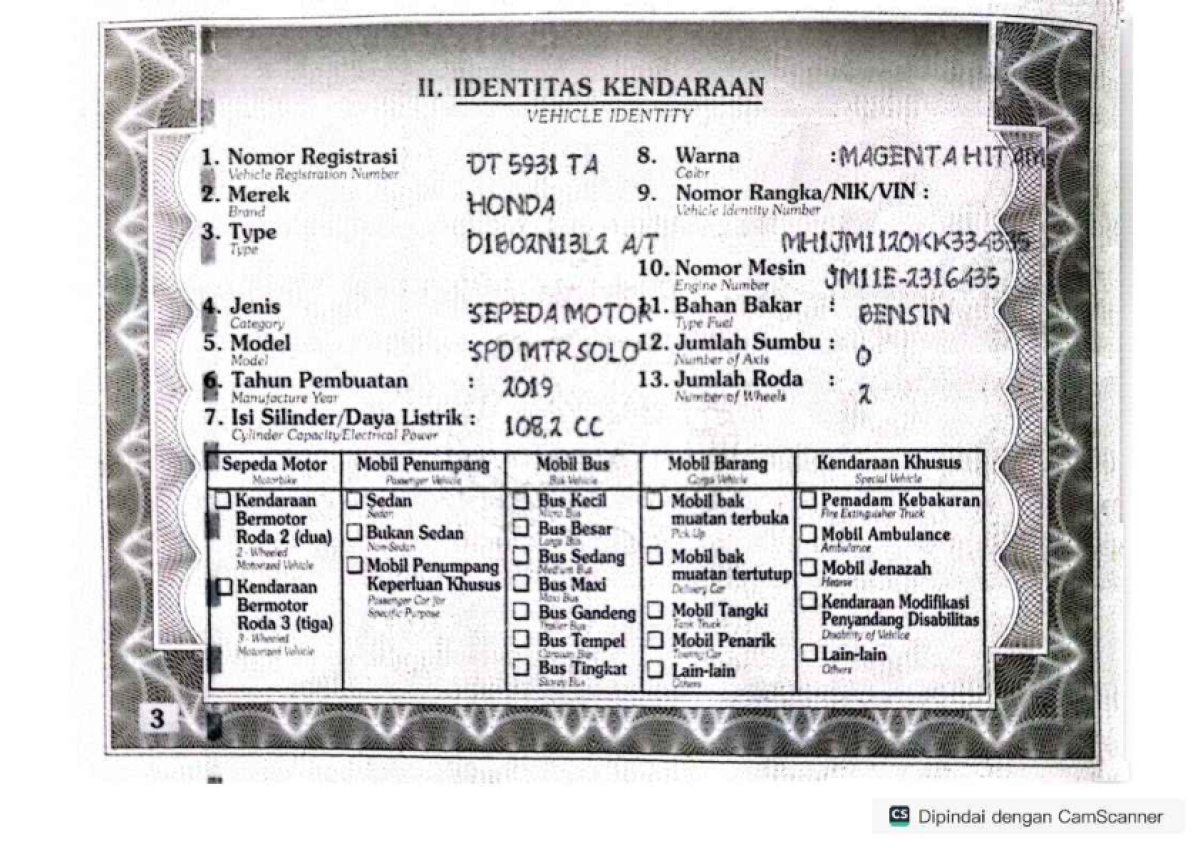 II. IDENTITAS KENDARAAN
VEHICLE IDENTITY
1. Nomor Registrasi : DT 5931 TA
Vehicle Registration Number
2. Merek : HONDA
Brand
3. Type : D1B02N13L2 A/T
Type
4. Jenis : SEPEDA MOTOR
Category
5. Model : SPD MTR SOLO
Model
6. Tahun Pembuatan : 2019
Manufacture Year
7. Isi Silinder/Daya Listrik : 108,2 CC
Cylinder Capacity/Electrical Power
8. Warna : MAGENTA HITAM
Color
9. Nomor Rangka/NIK/VIN :
Vehicle Identity Number
MH1JM1120KK334335
10. Nomor Mesin JM11E-2316435
Engine Number
11. Bahan Bakar : BENSIN
Type Fuel
12. Jumlah Sumbu : 0
Number of Axis
13. Jumlah Roda : 2
Number of Wheels
Sepeda Motor
Motorbike
Kendaraan
Bermotor
Roda 2 (dua)
2 - Wheeled
Motorized Vehicle
Kendaraan
Bermotor
Roda 3 (tiga)
3 - Wheeled
Motorized Vehicle
Mobil Penumpang
Passenger Vehicle
Sedan
Sedan
Bukan Sedan
Non-Sedan
Mobil Penumpang
Keperluan Khusus
Passenger Car for
Specific Purpose
Mobil Bus
Bus Vehicle
Bus Kecil
Micro Bus
Bus Besar
Large Bus
Bus Sedang
Medium Bus
Bus Maxi
Maxi Bus
Bus Gandeng
Trailer Bus
Bus Tempel
Caravan Bus
Bus Tingkat
Storey Bus
Mobil Barang
Cargo Vehicle
Mobil bak
muatan terbuka
Pick Up
Mobil bak
muatan tertutup
Delivery Car
Mobil Tangki
Tank Truck
Mobil Penarik
Towing Car
Lain-lain
Others
Kendaraan Khusus
Special Vehicle
Pemadam Kebakaran
Fire Extinguisher Truck
Mobil Ambulance
Ambulance
Mobil Jenazah
Hearse
Kendaraan Modifikasi
Penyandang Disabilitas
Disability of Vehicle
Lain-lain
Others
3
CS Dipindai dengan CamScanner